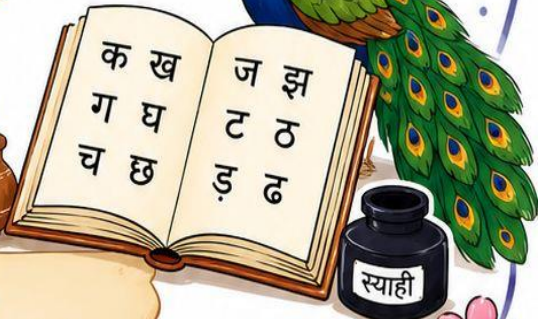 क ख
ग घ
च छ
ज झ
ट ठ
ड़ ढ
स्याही